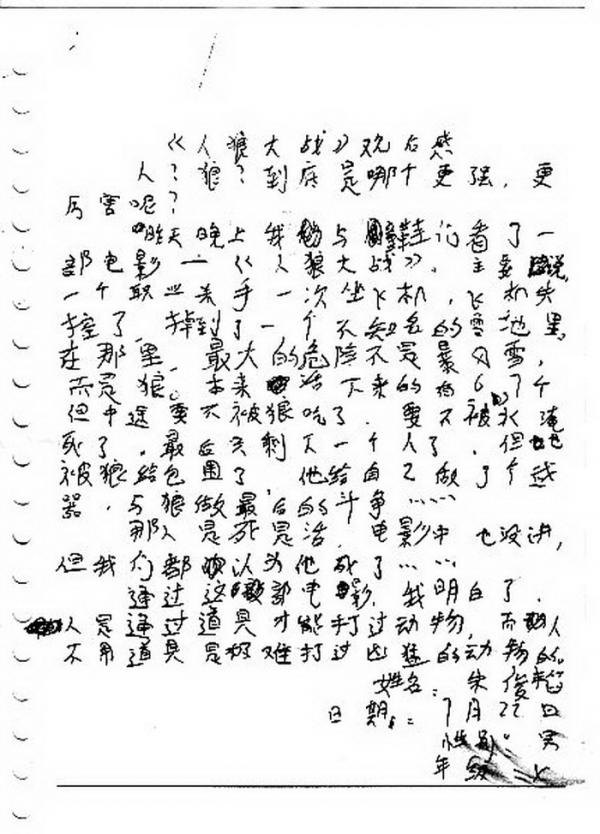 《人狼大战》观后感
人?狼?到底是哪个更强,更
厉害呢?
昨天晚上我与鞋论看了一
部电影—《人狼大战》,主要说,
一个职业杀手一次坐飞机,飞机失
控了,掉到了一个不知名的雪地里。
在那里,最大的危险不是暴风雪,
而是狼。本来活下来的有6个
但中途要不被狼吃了,要不被水淹
死了。最后只剩下一个人了,但也
被狼给包围了,他给自己做了个武
器,与狼做最后的斗争……
那人是死是活,电影中也没讲,
但我们都认为他死了……
通过这部电影,我明白了,
人是通过道具才能打过动物,而人
不用道具是极难打过凶猛的动物的。
姓名:朱俊
日期:7月22日
性别 男
年级